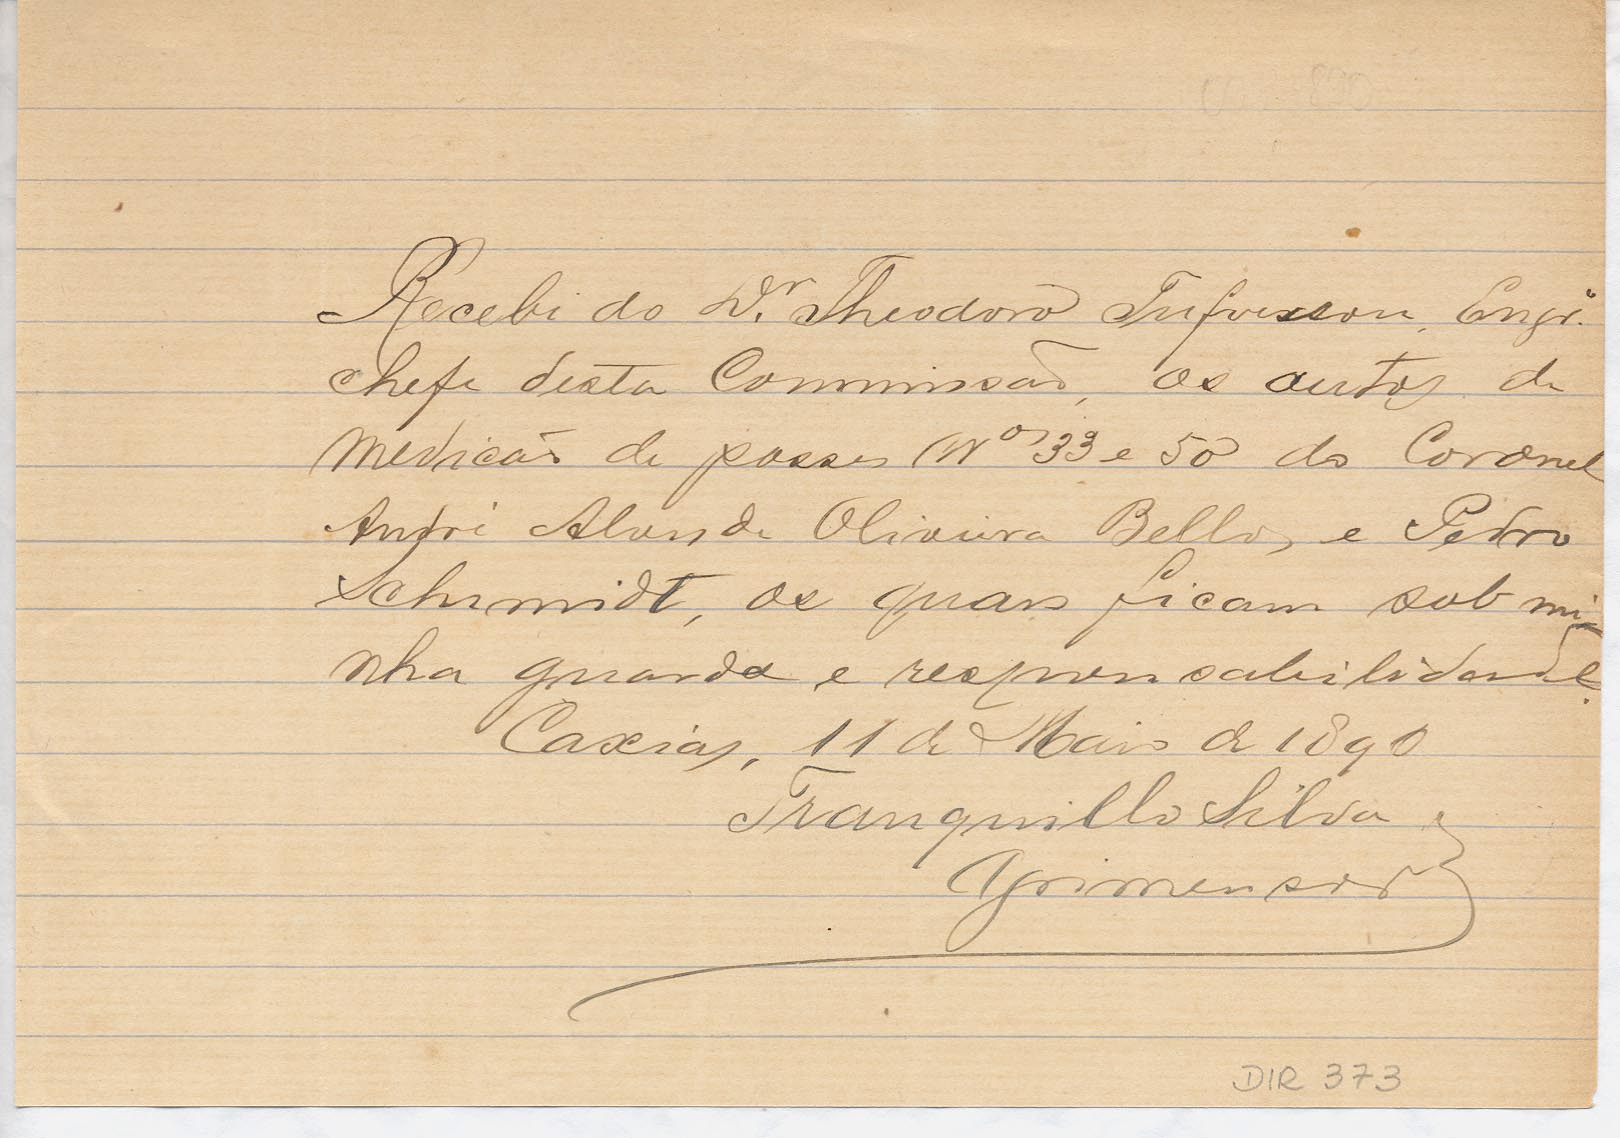 Recebi do Dr. Theodoro Tufvesson, Engr.º
chefe desta Commissão, os autos de
medicão de posses Nos 33 e 50 do Coronel
André Alves de Oliveira Bello, e Pedro
Schmidt, os quaes ficam sob mi-
nha guarda e responsabilidade.
Caxias, 11 de Maio de 1890
Tranquillo Silva
Agrimensor
DIR 373